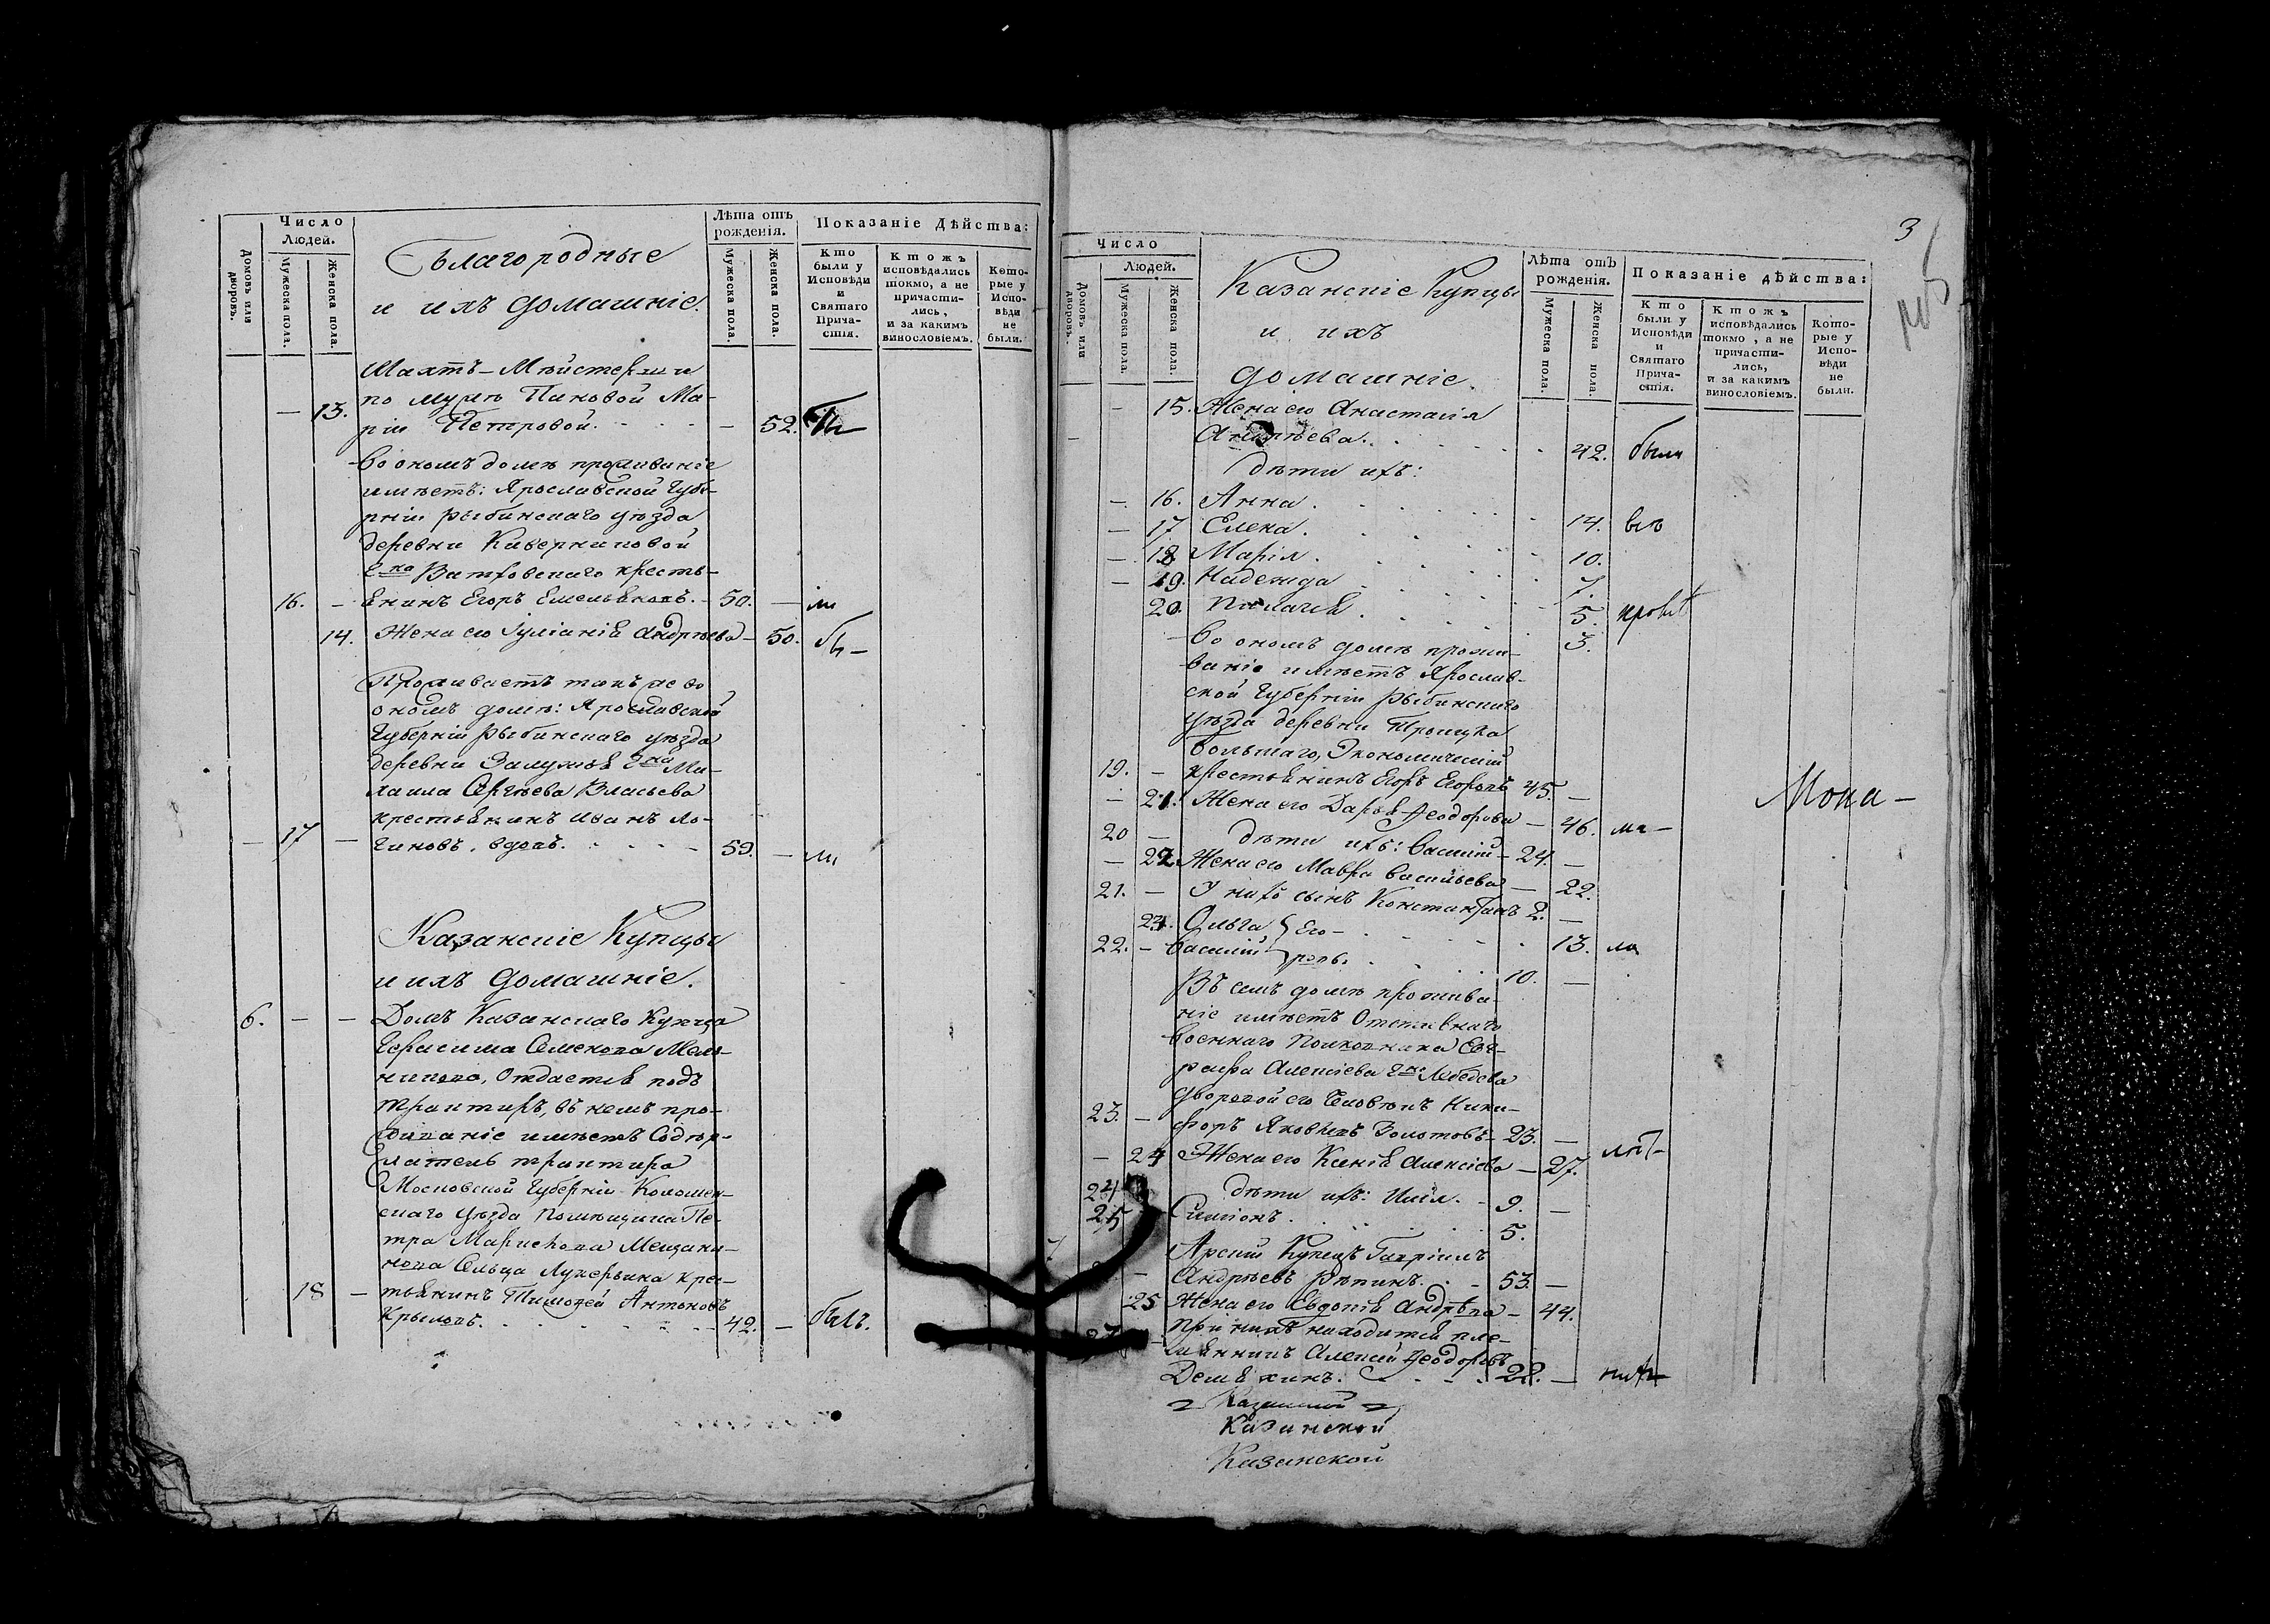 Число
Людей.
Домовъ или дворовъ.
Мужеска пола.
Женска пола.
Благородные
и ихъ домашніе.
Лѣта отъ
рожденія.
Мужеска пола.
Женска пола.
Показаніе Дѣйства:
Кто
были у
Исповѣди
и
Святаго
Прича-
стія.
Ктожъ
исповѣдались
токмо, а не
причасти-
лись,
и за какимъ
винословіемъ.
Кото-
рые у
Испо-
вѣди
не
были.
по мужѣ Пиновой Ма-
— 13. ріи Петровой. — 52.
Во ономъ домѣ проживаніе
имѣетъ: Ярославской Губе-
рніи Рыбинскаго уѣзда
деревни
крестъ-
16. — янинъ Егоръ Емельяновъ. 50. —
14. Жена его Іуліанія Андрѣева — 50.
Проживаетъ такъ же во
ономъ домѣ: Ярославской
Губерніи Рыбинскаго уѣзда
деревни Залужья Гна Ми-
хаила Сергѣева Власьева
крестьянинъ Иванъ Ло-
— 17 — гиновъ, вдовъ. 59. —
Казанскіе Купцы
и ихъ домашніе.
6. — — Домъ Казанскаго Купца
Герасима Семенова Мель-
никова, Отдается подъ
трактиръ, въ немъ про-
живаніе имѣетъ Содер-
жатель трактира
Московской Губерніи Коломен-
скаго уѣзда помѣщика Пе-
тра
Сельца крес-
18 — тьянинъ Тимоѳей Антоновъ
Крыловъ. 42. — былъ.
3
Число
Людей.
Домовъ или дворовъ.
Мужеска пола.
Женска пола.
Казанскіе Купцы
и ихъ
домашніе.
Лѣта отъ
рожденія.
Мужеска пола.
Женска пола.
Показаніе дѣйства:
Кто
были у
Исповѣди
и
Святаго
Прича-
стія.
Ктожъ
исповѣдались
токмо, а не
причасти-
лись,
и за какимъ
винословіемъ.
Кото-
рые у
Испо-
вѣди
не
были.
— 15. Жена его Анастасія
Андрѣева. 42. были
дѣти ихъ:
— 16. Анна. 14.
— 17 Елена. 10.
— 18 Марія. 7.
— 19. Надежда 5.
20. Пелагія. 3.
Во ономъ домѣ прожи-
ваніе имѣетъ Ярослав-
ской Губерніи Рыбинскаго
уѣзда деревни Троицка
большаго, Экономическій
19. — крестьянинъ Егоръ Егоровъ 45. —
— 21. Жена его Дарья Ѳеодорова — 46.
20 — дѣти ихъ: Василій — 24. —
— 22. Жена его Мавра Васильева — 22.
21. — У нихъ сынъ Константинъ 2. —
23. Ольга Его- 13.
22. — Василій ровы. 10. —
Въ семъ домѣ прожива-
ніе имѣетъ Отставнаго
военнаго Полковника Ев-
графа Алексіева Гна Лебедева
дворовой его Человѣкъ Ники-
23. — форъ Яковлевъ Золотовъ — 23. —
— 24 Жена его Ксенія Алексіева — 27.
24 дѣти ихъ: Илія. 9. —
25 Симіонъ. 5.
Арскій Купецъ Гавріилъ
— Андрѣевъ Рѣпинъ. 53. —
25 Жена его Евдокія Андрѣва — 44.
При нихъ находится пле-
мянникъ Алексій Ѳеодоровъ
22. —
Казанской
Казанской
Казанской